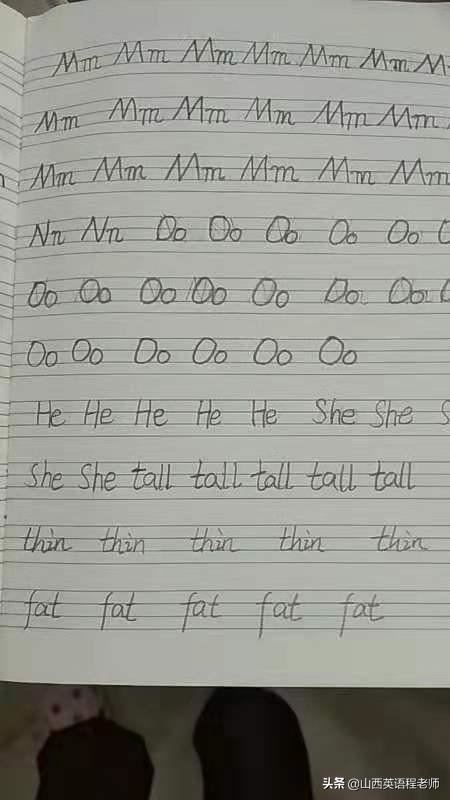 Mm Mm Mm Mm Mm Mm M
Mm Mm Mm Mm Mm Mm
Mm Mm Mm Mm Mm Mm
Nn Nn Oo Oo Oo Oo Oo O
Oo Oo Oo Oo Oo Oo Oo O
Oo Oo Oo Oo Oo Oo
He He He He He She She S
She She tall tall tall tall tall
thin thin thin thin thin
fat fat fat fat fat
头条 @山西英语程老师